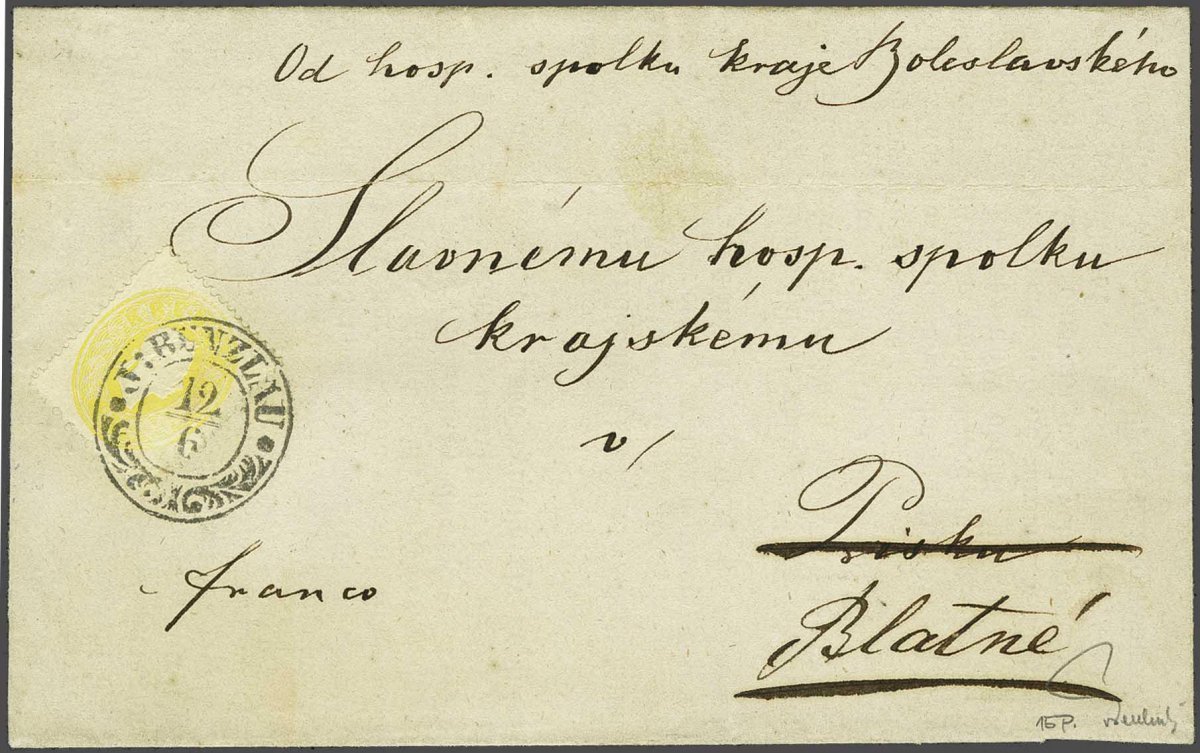 Od hosp. spolku kraje Boleslavského
Slavnému hosp. spolku
krajskému
v/
Pisku
Blatné
franco
J: BUNZLAU
12
6
15P.